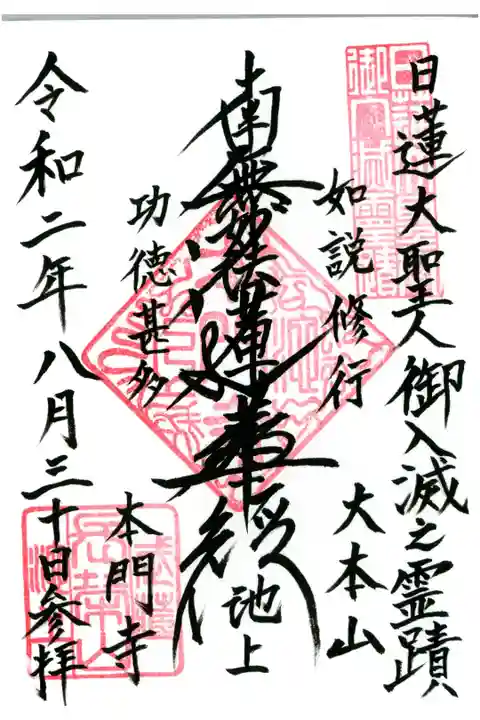 日蓮大聖人御入滅之霊蹟
大本山
池上
如説修行
南無妙法蓮華経
功徳甚多
本門寺
令和二年八月三十日参拝